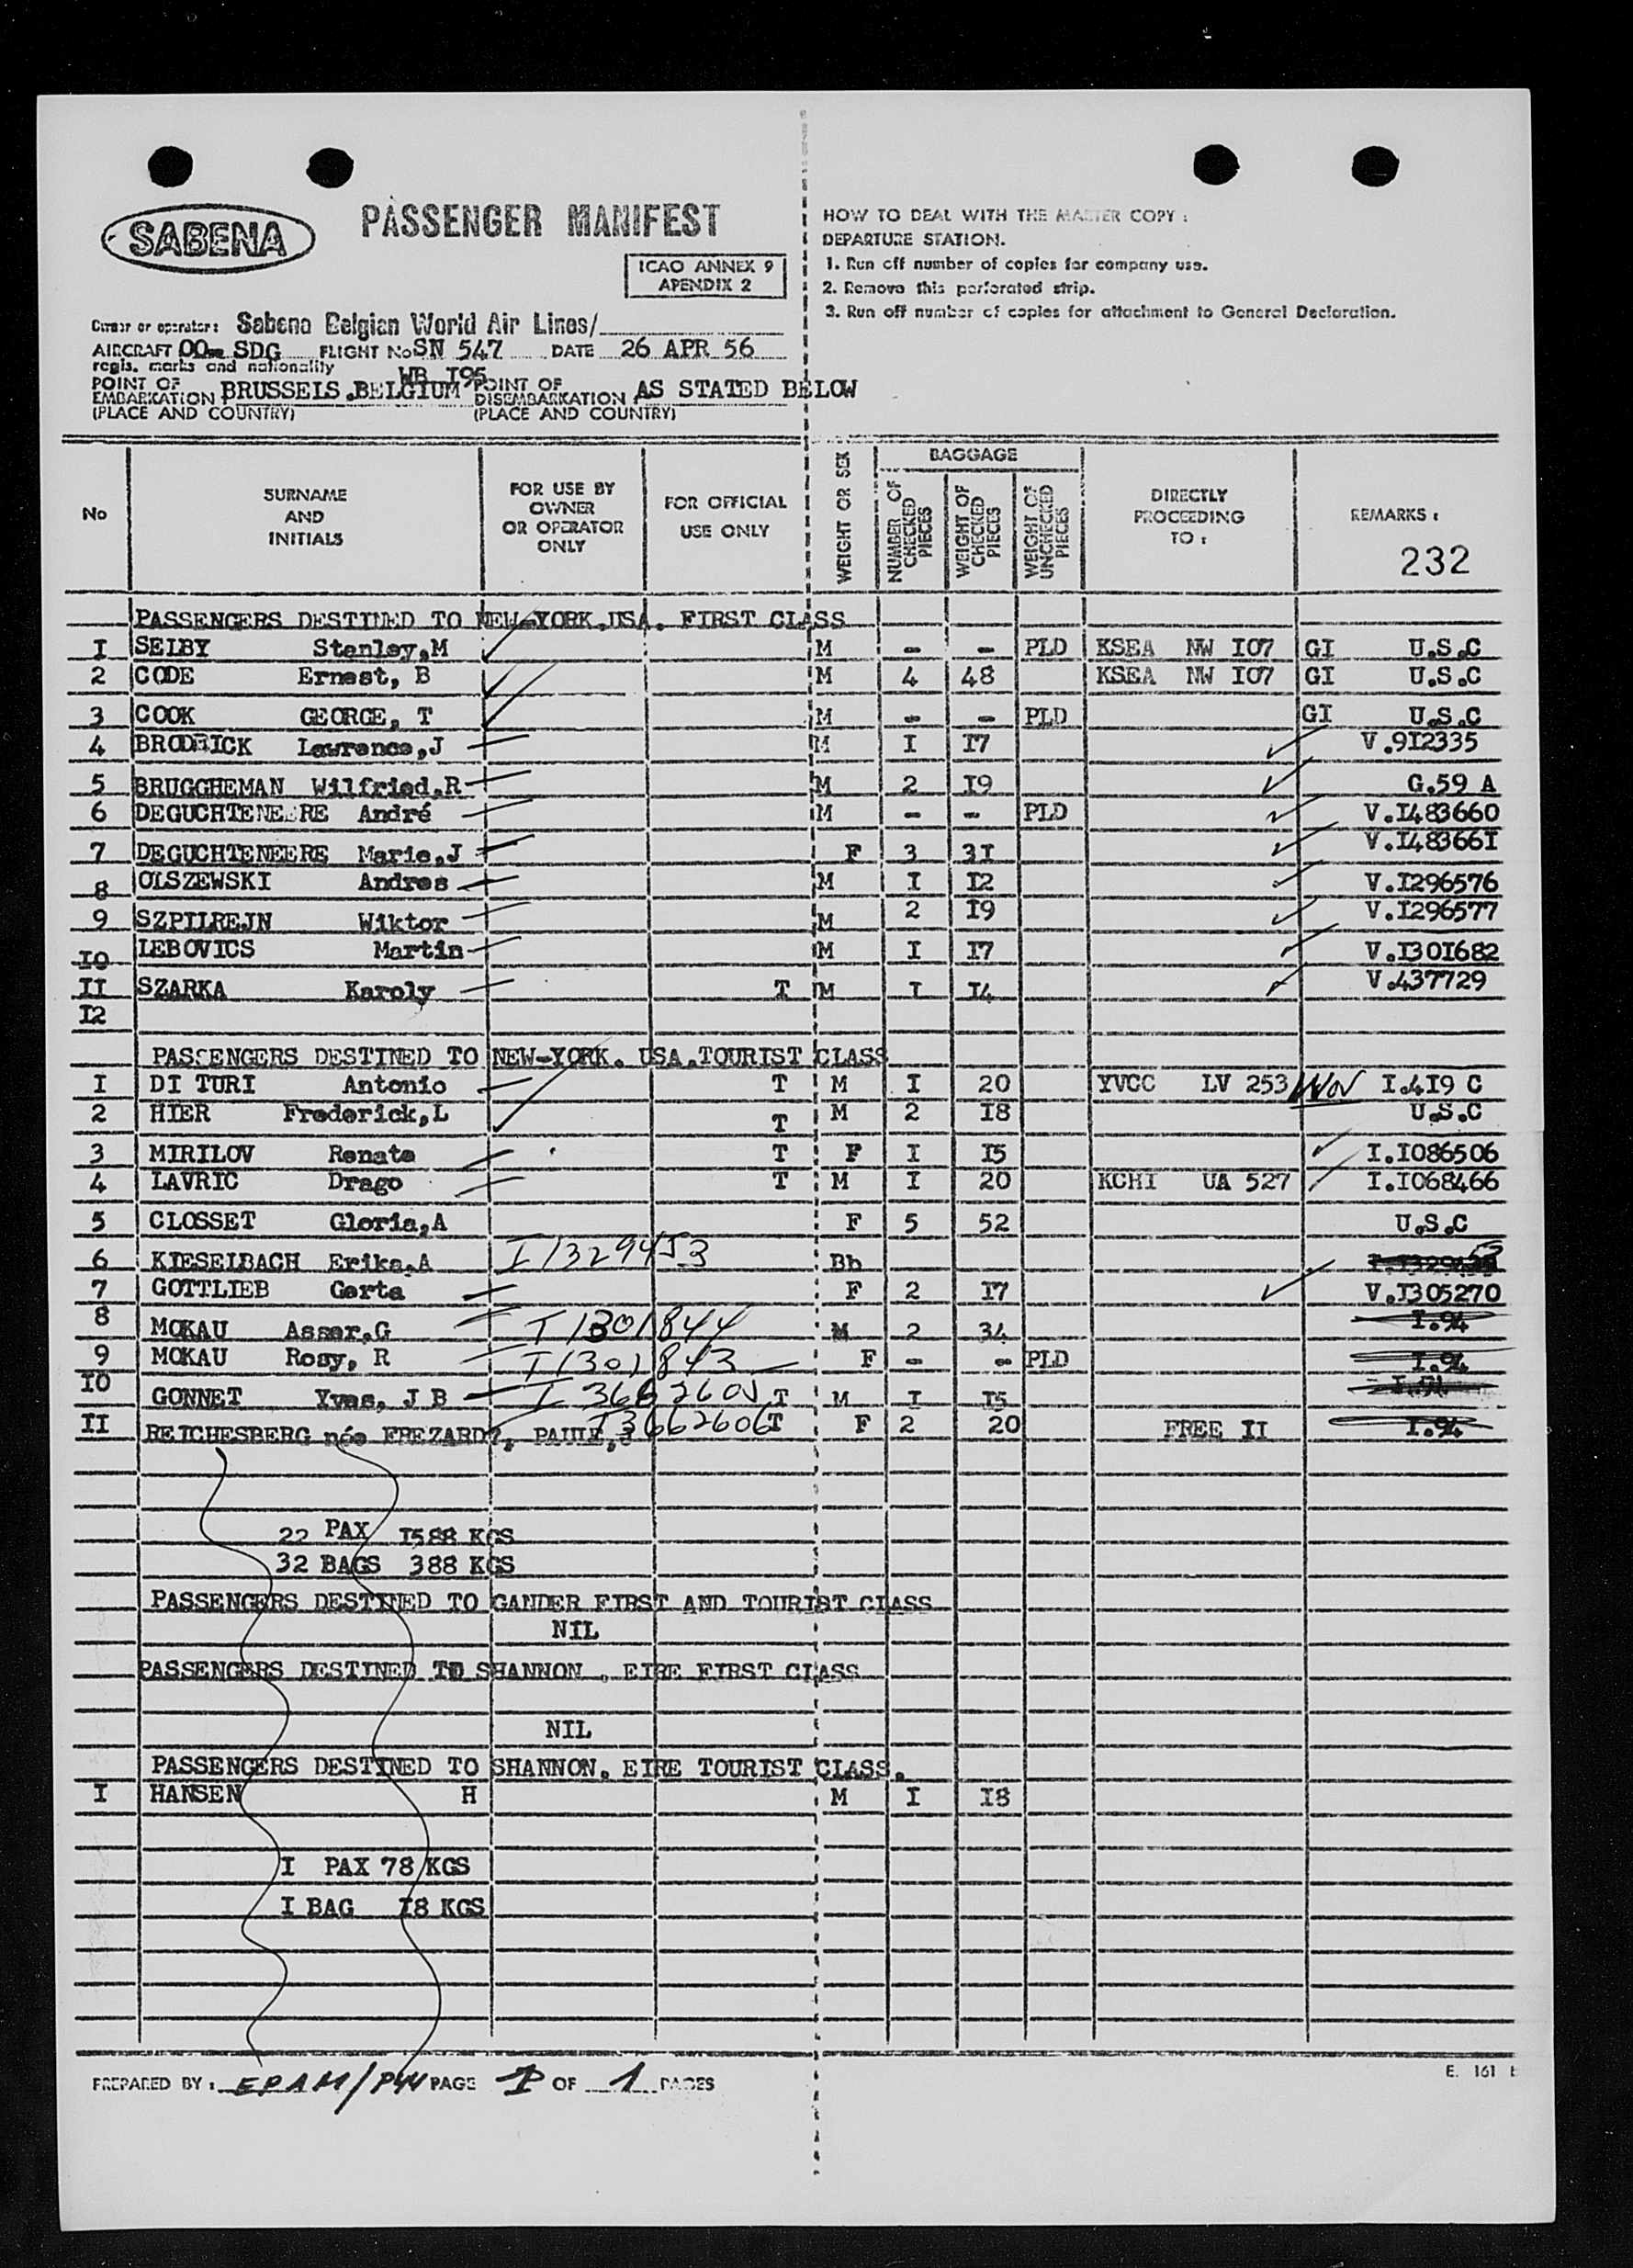 SABENA
PASSENGER MANIFEST
ICAO ANNEX 9
APENDIX 2
HOW TO DEAL WITH THE MASTER COPY :
DEPARTURE STATION.
1. Run off number of copies for company use.
2. Remove this perforated strip.
3. Run off number of copies for attachment to General Declaration.
Owner or operator: Sabena Belgian World Air Lines/
AIRCRAFT OO SDG FLIGHT No SN 547 DATE 26 APR 56
regis. marks and nationality WB I95
POINT OF EMBARKATION BRUSSELS.BELGIUM POINT OF DISEMBARKATION AS STATED BELOW
(PLACE AND COUNTRY) (PLACE AND COUNTRY)
No SURNAME AND INITIALS FOR USE BY OWNER OR OPERATOR ONLY FOR OFFICIAL USE ONLY WEIGHT OR SEX BAGGAGE NUMBER OF CHECKED PIECES WEIGHT OF CHECKED PIECES WEIGHT OF UNCHECKED PIECES DIRECTLY PROCEEDING TO : REMARKS :
232
PASSENGERS DESTINED TO NEW-YORK.USA. FIRST CLASS
I SELBY Stanley,M M - - PLD KSEA NW I07 GI U.S.C
2 CODE Ernest, B M 4 48 KSEA NW I07 GI U.S.C
3 COOK GEORGE, T M - - PLD GI U.S.C
4 BRODRICK Lawrence,J M I I7 V.9I2335
5 BRUGGHEMAN Wilfried.R M 2 I9 G.59 A
6 DEGUCHTENEERE André M - - PLD V.I483660
7 DEGUCHTENEERE Marie,J F 3 3I V.I48366I
8 OLSZEWSKI Andres M I I2 V.I296576
9 SZPILREJN Wiktor M 2 I9 V.I296577
I0 LEBOVICS Martin M I I7 V.I30I682
II SZARKA Karoly T M I I4 V.437729
I2
PASSENGERS DESTINED TO NEW-YORK. USA.TOURIST CLASS
I DI TURI Antonio T M I 20 YVCC LV 253 I.4I9 C
2 HIER Frederick,L T M 2 I8 U.S.C
3 MIRILOV Renate T F I I5 I.I086506
4 LAVRIC Drago T M I 20 KCHI UA 527 I.I068466
5 CLOSSET Gloria,A F 5 52 U.S.C
6 KIESELBACH Erika.A I 1329453 Bb
7 GOTTLIEB Gerta F 2 I7 V.I305270
8 MOKAU Asser,G I 1301844 M 2 34 I.94
9 MOKAU Rosy, R I 1301843 F - - PLD I.94
I0 GONNET Yves, J B I 3662605 T M I I5 I.94
II REICHESBERG née FREZARD?, PAULE, I 3662606 T F 2 20 FREE II I.94
22 PAX I588 KGS
32 BAGS 388 KGS
PASSENGERS DESTINED TO GANDER FIRST AND TOURIST CLASS
NIL
PASSENGERS DESTINED TO SHANNON . EIRE FIRST CLASS
NIL
PASSENGERS DESTINED TO SHANNON. EIRE TOURIST CLASS.
I HANSEN H M I I8
I PAX 78 KGS
I BAG I8 KGS
E. 161
PREPARED BY : PAGE 1 OF 1 PAGES